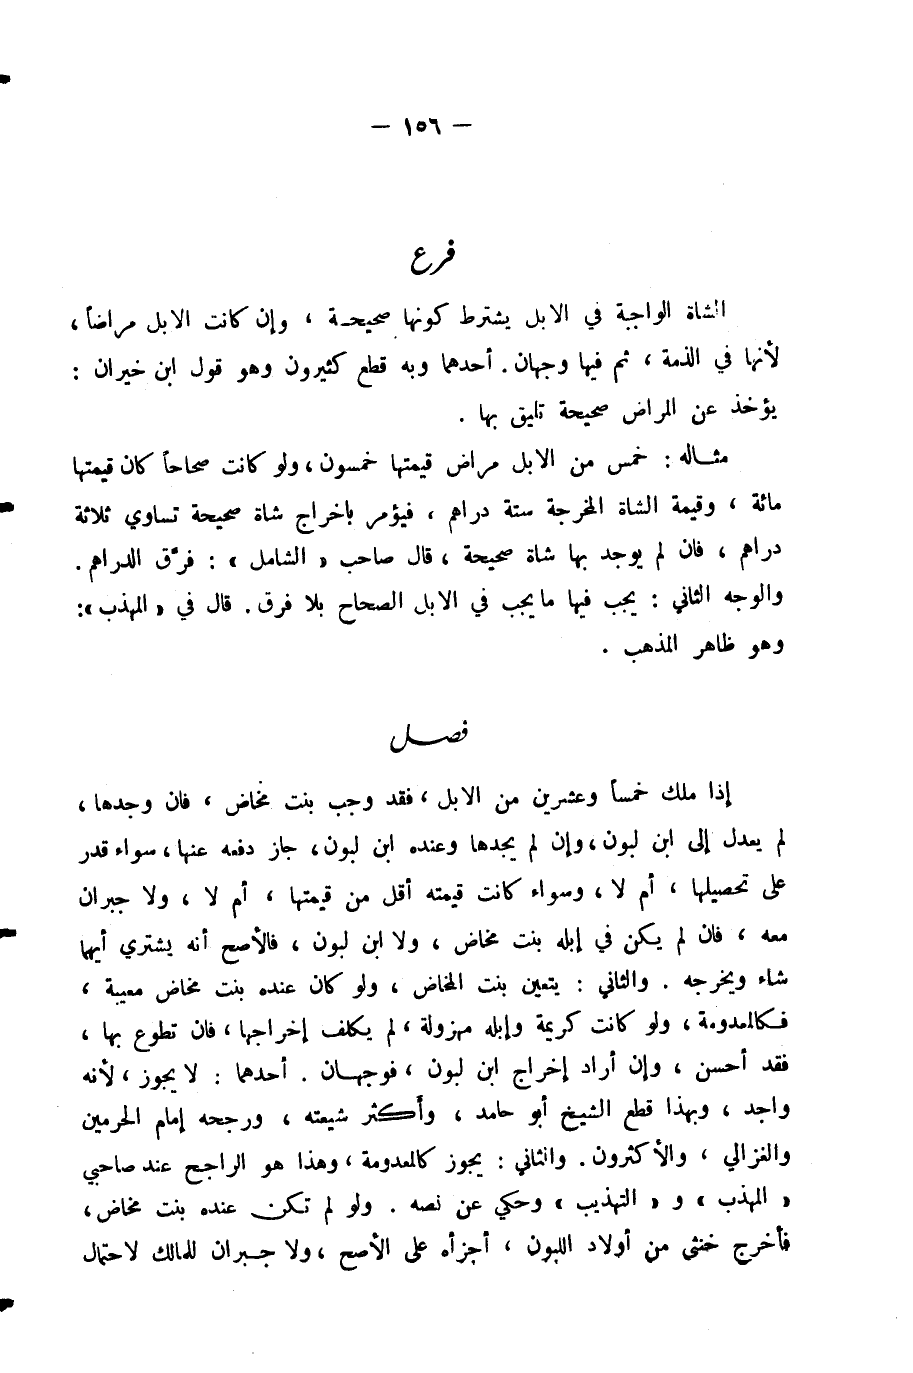 — ١٥٦ —
فرع
الشاة الواجبة في الابل يشترط كونها صحيحـة ، وإن كانت الابل مراضاً ،
لأنها في الذمة ، ثم فيها وجهان . أحدهما وبه قطع كثيرون وهو قول ابن خيران :
يؤخذ عن المراض صحيحة تليق بها .
مثـاله : خمس من الابل مراض قيمتها خمسون ، ولو كانت صحاحاً كان قيمتها
مائة ، وقيمة الشاة المخرجة ستة دراهم ، فيؤمر باخراج شاة صحيحة تساوي ثلاثة
دراهم ، فان لم يوجد بها شاة صحيحة ، قال صاحب « الشامل » : فرَّق الدراهم .
والوجه الثاني : يجب فيها ما يجب في الابل الصحاح بلا فرق . قال في « المهذب » :
وهو ظاهر المذهب .
فصـل
إذا ملك خمساً وعشرين من الابل ، فقد وجب بنت مخاض ، فان وجدها ،
لم يعدل إلى ابن لبون ، وإن لم يجدها وعنده ابن لبون ، جاز دفعه عنها ، سواء قدر
على تحصيلها ، أم لا ، وسواء كانت قيمته أقل من قيمتها ، أم لا ، ولا جبران
معه ، فان لم يكن في إبله بنت مخاض ، ولا ابن لبون ، فالأصح أنه يشتري أيهما
شاء ويخرجه . والثاني : يتعين بنت المخاض ، ولو كان عنده بنت مخاض معيبة ،
فكالمعدومة ، ولو كانت كريمة وإبله مهزولة ، لم يكلف إخراجها ، فان تطوع بها ،
فقد أحسن ، وإن أراد إخراج ابن لبون ، فوجهـان . أحدهما : لا يجوز ، لأنه
واجد ، وبهذا قطع الشيخ أبو حامد ، وأكثر شيعته ، ورجحه إمام الحرمين
والغزالي ، والأكثرون . والثاني : يجوز كالمعدومة ، وهذا هو الراجح عند صاحبي
« المهذب » و « التهذيب » وحكي عن نصه . ولو لم تكن عنده بنت مخاض ،
فأخرج خنثى من أولاد اللبون ، أجزأه على الأصح ، ولا جـبران للمالك لاحتمال